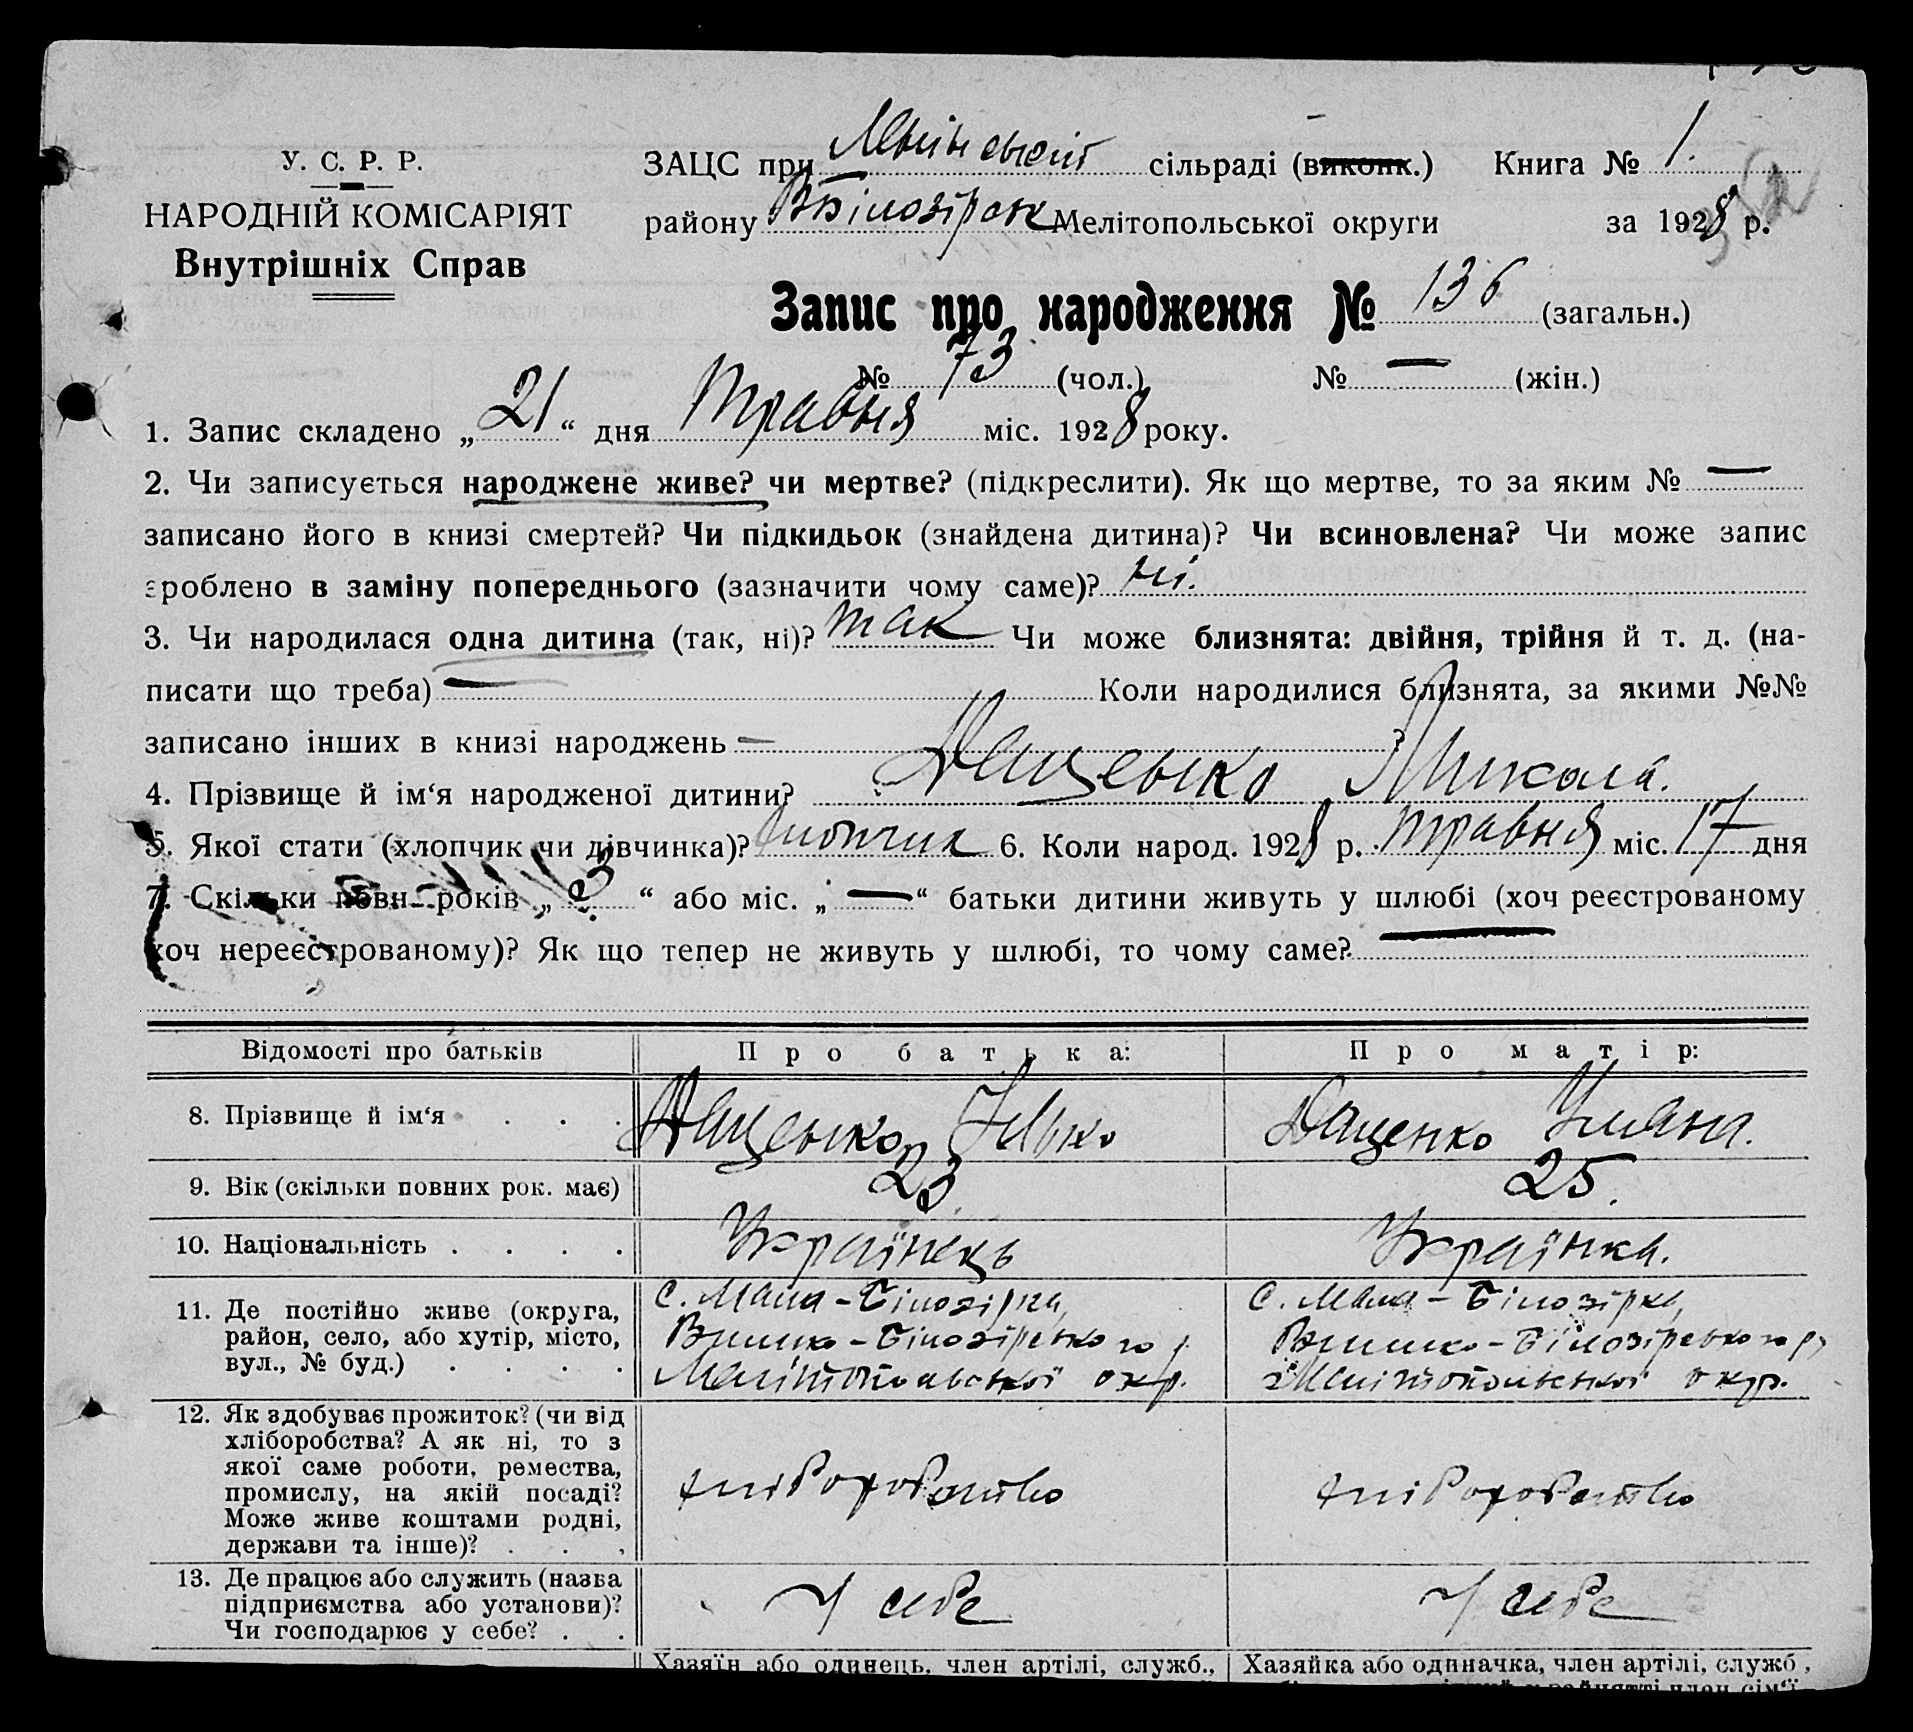 У. С. Р. Р.
НАРОДНІЙ КОМІСАРІЯТ
Внутрішніх Справ
ЗАЦС при сільраді (виконк.) Книга № 1.
району В Білозірськ Мелітопольської округи за 1928 р.
Запис про народження № 136 (загальн.)
№ 73 (чол.) № — (жін.)
1. Запис складено „21“ дня Травня міс. 1928 року.
2. Чи записується народжене живе? чи мертве? (підкреслити). Як що мертве, то за яким № —
записано його в книзі смертей? Чи підкидьок (знайдена дитина)? Чи всиновлена? Чи може запис
зроблено в заміну попереднього (зазначити чому саме)? Ні.
3. Чи народилася одна дитина (так, ні)? так Чи може близнята: двійня, трійня й т. д. (на-
писати що треба) — Коли народилися близнята, за якими №№
записано інших в книзі народжень — ?
4. Прізвище й ім‘я народженої дитини? Даценько Микола.
5. Якої стати (хлопчик чи дівчинка)? Хлопчик 6. Коли народ. 1928 р. травня міс. 17 дня
7. Скільки повн. років „3“ або міс. „—“ батьки дитини живуть у шлюбі (хоч реєстрованому
хоч нереєстрованому)? Як що тепер не живуть у шлюбі, то чому саме? —
Відомості про батьків Про батька: Про матір:
8. Прізвище й ім‘я . . . Даценько Ілько Даценко Уляна.
9. Вік (скільки повних рок. має) 23 25.
10. Національність . . . . Українець Українка.
11. Де постійно живе (округа, район, село, або хутір, місто, вул., № буд.) . . . .
с. Мала-Білозірка,
Велико-Білозірського р.
Мелітопольської окр.
с. Мала-Білозірка,
Велико-Білозірського р,
Мелітопольської окр.
12. Як здобуває прожиток? (чи від
хліборобства? А як ні, то з
якої саме роботи, ремества,
промислу, на якій посаді?
Може живе коштами родні,
держави та інше)? . . .
хліборобство хліборобство
13. Де працює або служить (назва
підприємства або установи)?
Чи господарює у себе? . .
У себе У себе
Хазяїн або одинець, член артілі, служб., Хазяйка або одиначка, член артілі, служб.,